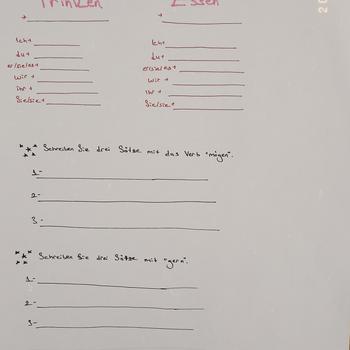 Trinken
Essen
Ich+
du+
er/sie/es+
wir+
ihr+
Sie/sie+
Ich+
du+
er/sie/es+
wir+
ihr+
Sie/sie+
Schreiben Sie drei Sätze mit das Verb "mögen".
1-
2-
3-
Schreiben Sie drei Sätze mit "gern".
1-
2-
3-